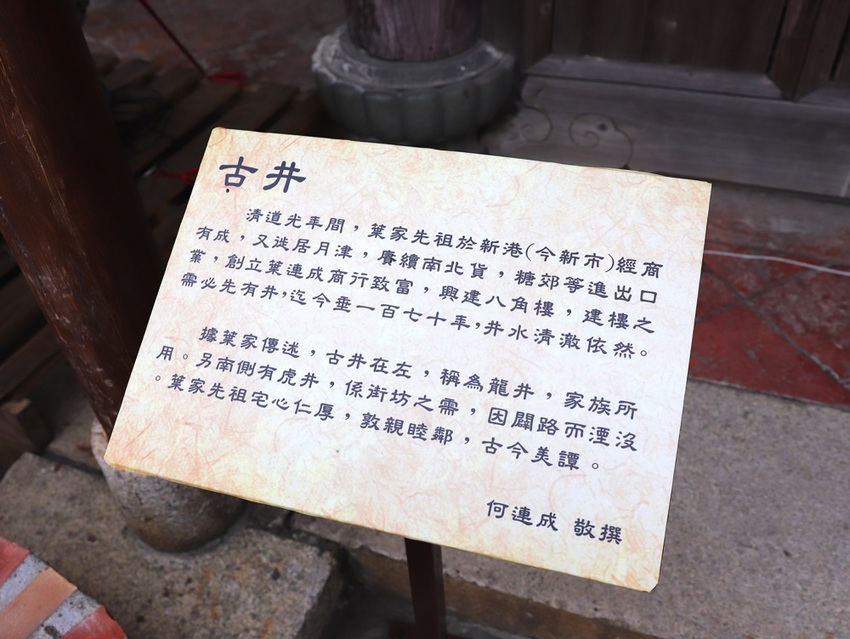 古井
清道光年間，葉家先祖於新港(今新市)經商
有成，又徙居月津，賡續南北貨，糖郊等進出口
業，創立葉連成商行致富，興建八角樓，建樓之
需必先有井，迄今垂一百七十年，井水清澈依然。
據葉家傳述，古井在左，稱為龍井，家族所
用。另南側有虎井，係街坊之需，因闢路而湮沒
。葉家先祖宅心仁厚，敦親睦鄰，古今美譚。
何連成 敬撰